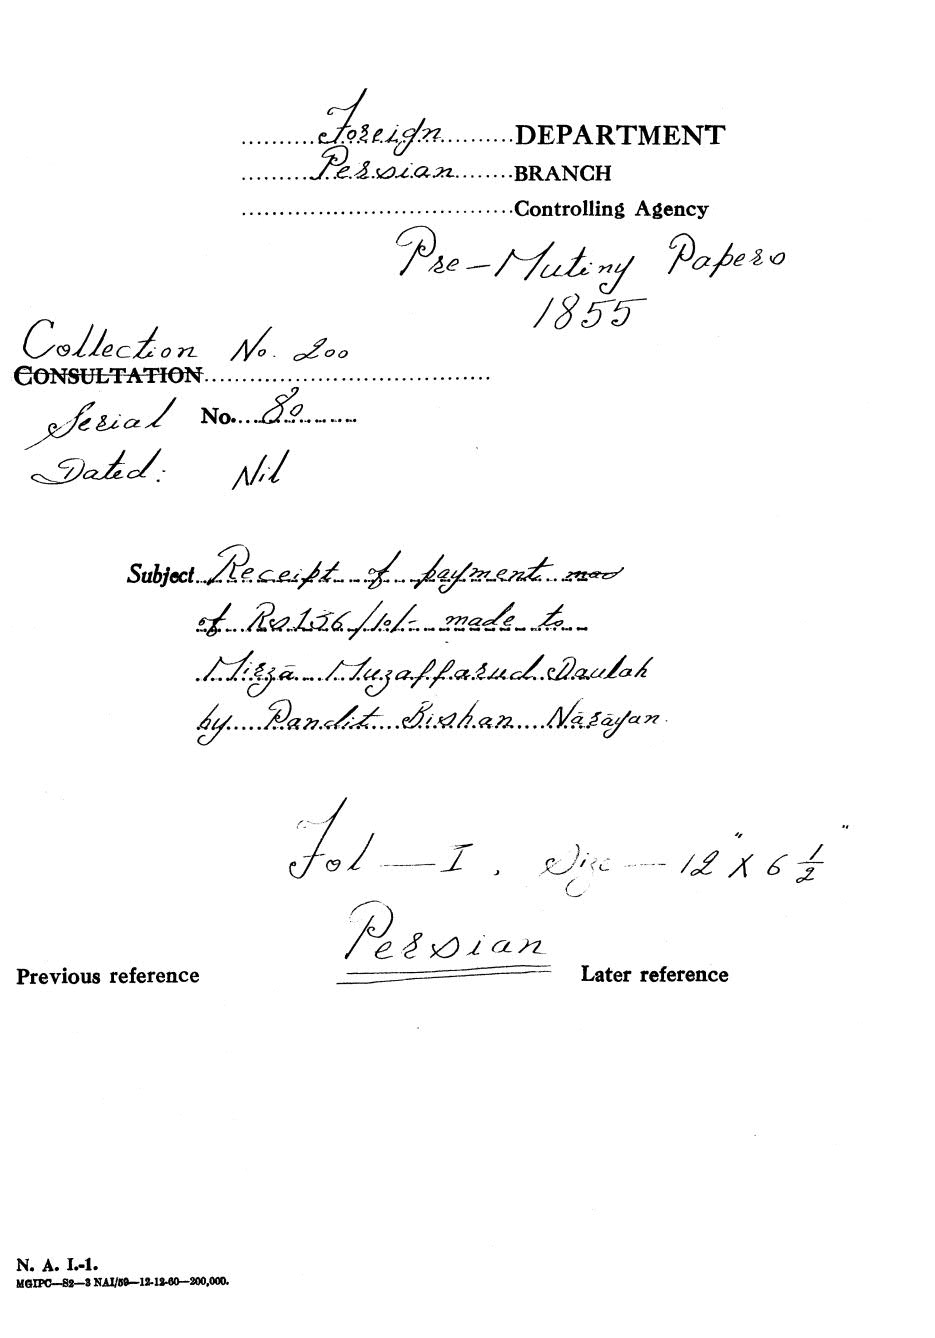 Foreign DEPARTMENT
Persian BRANCH
Controlling Agency
Pre-Mutiny Papers
1855
Collection No. 200
CONSULTATION
Serial No. 80
Dated: Nil
Subject Receipt of payment
of Rs 136/10/- made to
Mirzā Muzaffarud Daulah
by Pandit Bishan Nārāyan.
Fol — I, Size — 12" X 6 1/2"
Persian
Previous reference Later reference
N. A. I.-1.
MGIPC—S2—3 NAI/59—12-12-60—200,000.